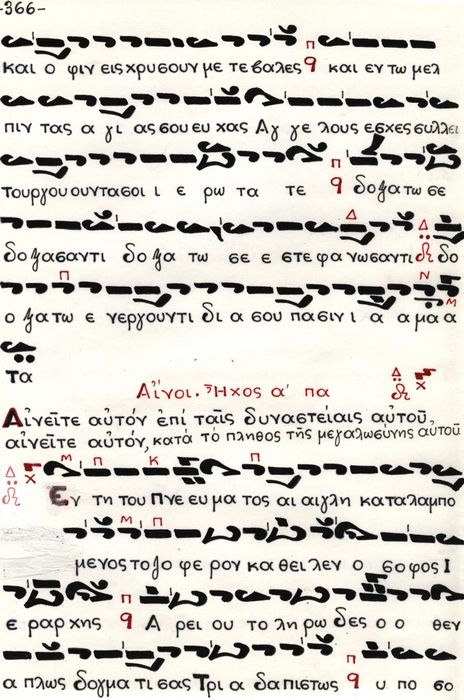 -366-
και ο φιν εις χρυσουν με τε βαλες π q και εν τω μελ
πιν τας α γι ας σου ευ χας Αγ γε λους εσχες συλλει
τουργου ουντα σοι ι ε ρω τα τε π q δο ξα τω σε
δο ξα σαντι δο ξα τω σε ε στε φα νωσαντι δο
ο ξα τω ε νεργουντι δι α σου πα σιν ι α α μα α
τα
Αἶνοι. Ἦχος α' πα
Αἰνεῖτε αὐτόν ἐπί ταῖς δυναστείαις αὐτοῦ,
αἰνεῖτε αὐτόν, κατά τό πλῆθος τῆς μεγαλωσύνης αὐτοῦ
Εν τη του Πνε ευ μα τος αι αιγλη καταλαμπο
μενος το ζο φε ρον καθει λεν ο σοφος Ι
ε ραρ χης π q Α ρει ου το λη ρω δες ο ο θεν
α πλως δογμα τι σας Τρι α δα πιστως π q υ πο σο